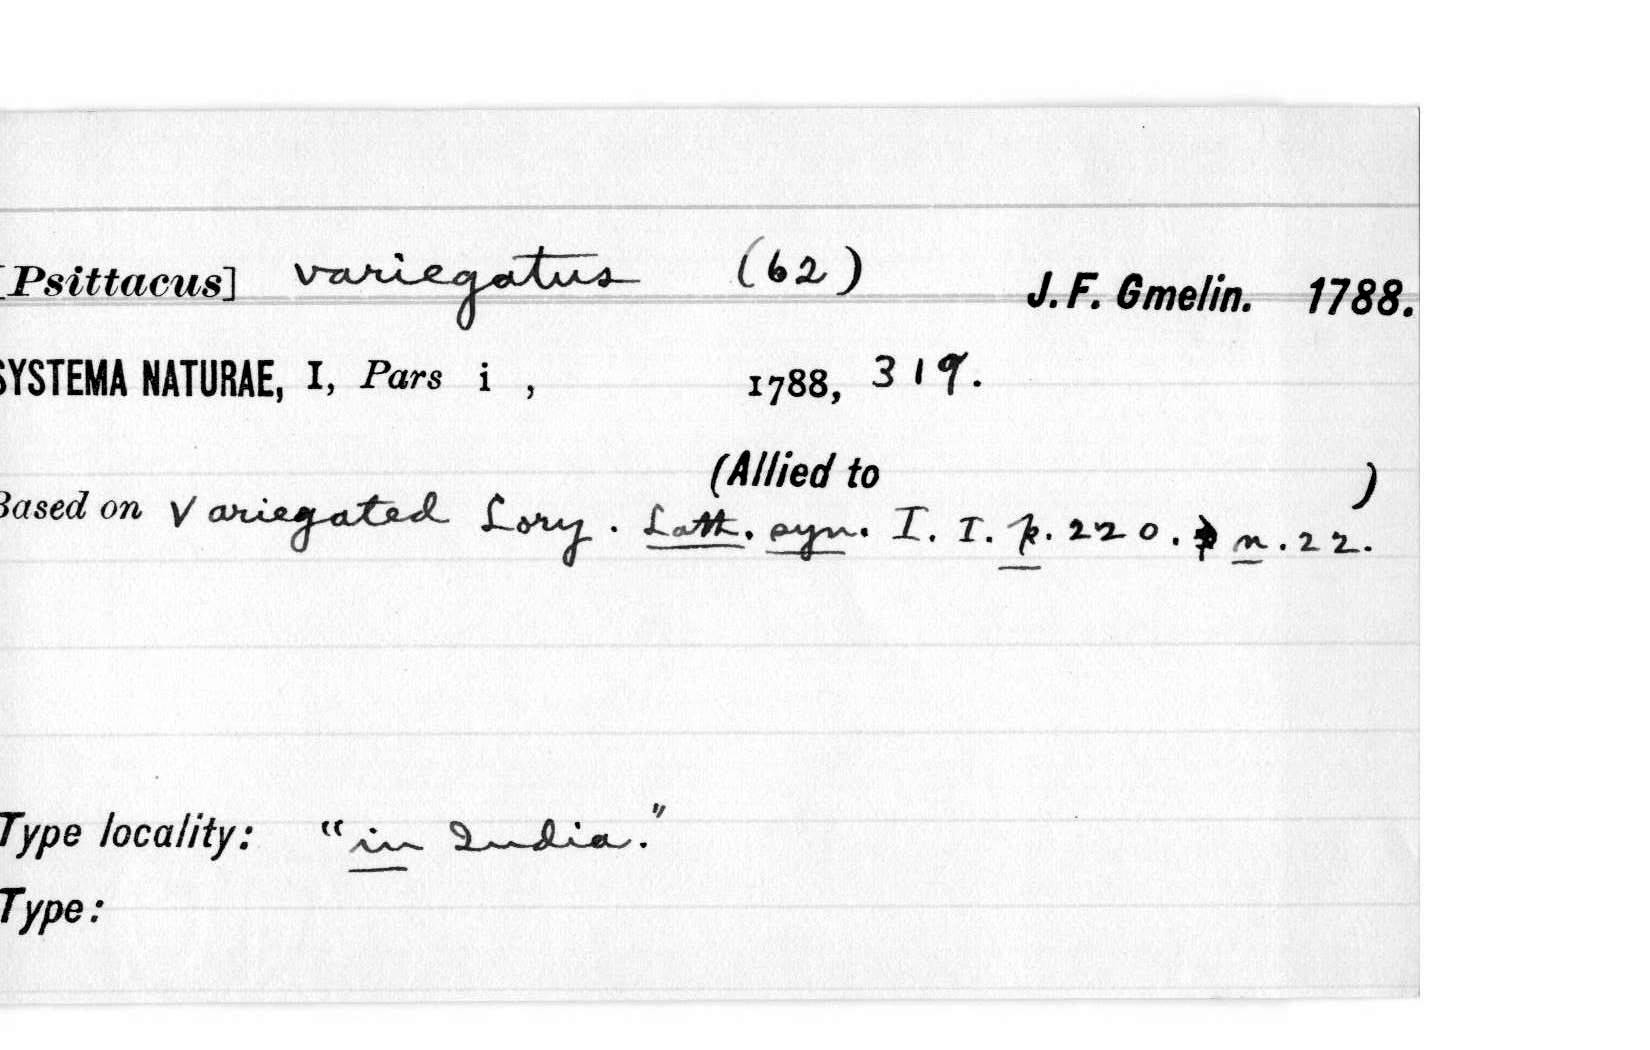 [Psittacus] variegatus (62) J. F. Gmelin. 1788.
SYSTEMA NATURAE, I, Pars i , 1788, 319.
(Allied to )
Based on Variegated Lory. Lath. syn. I. I. p. 220. n. 22.
Type locality: "in India."
Type: